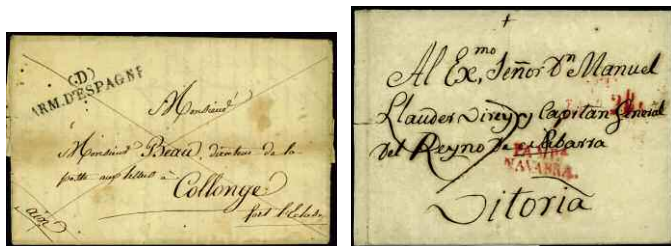 (D)
ARM. D'ESPAGNE
Monsieur
Monsieur Beau, directeur de la
poste aux lettres à
Collonge
fort l'Ecluse
Al Ex.mo Señor Dn Manuel
Llauder Virey y Capitan General
del Reyno de Nabarra
NAVARRA.
Vitoria